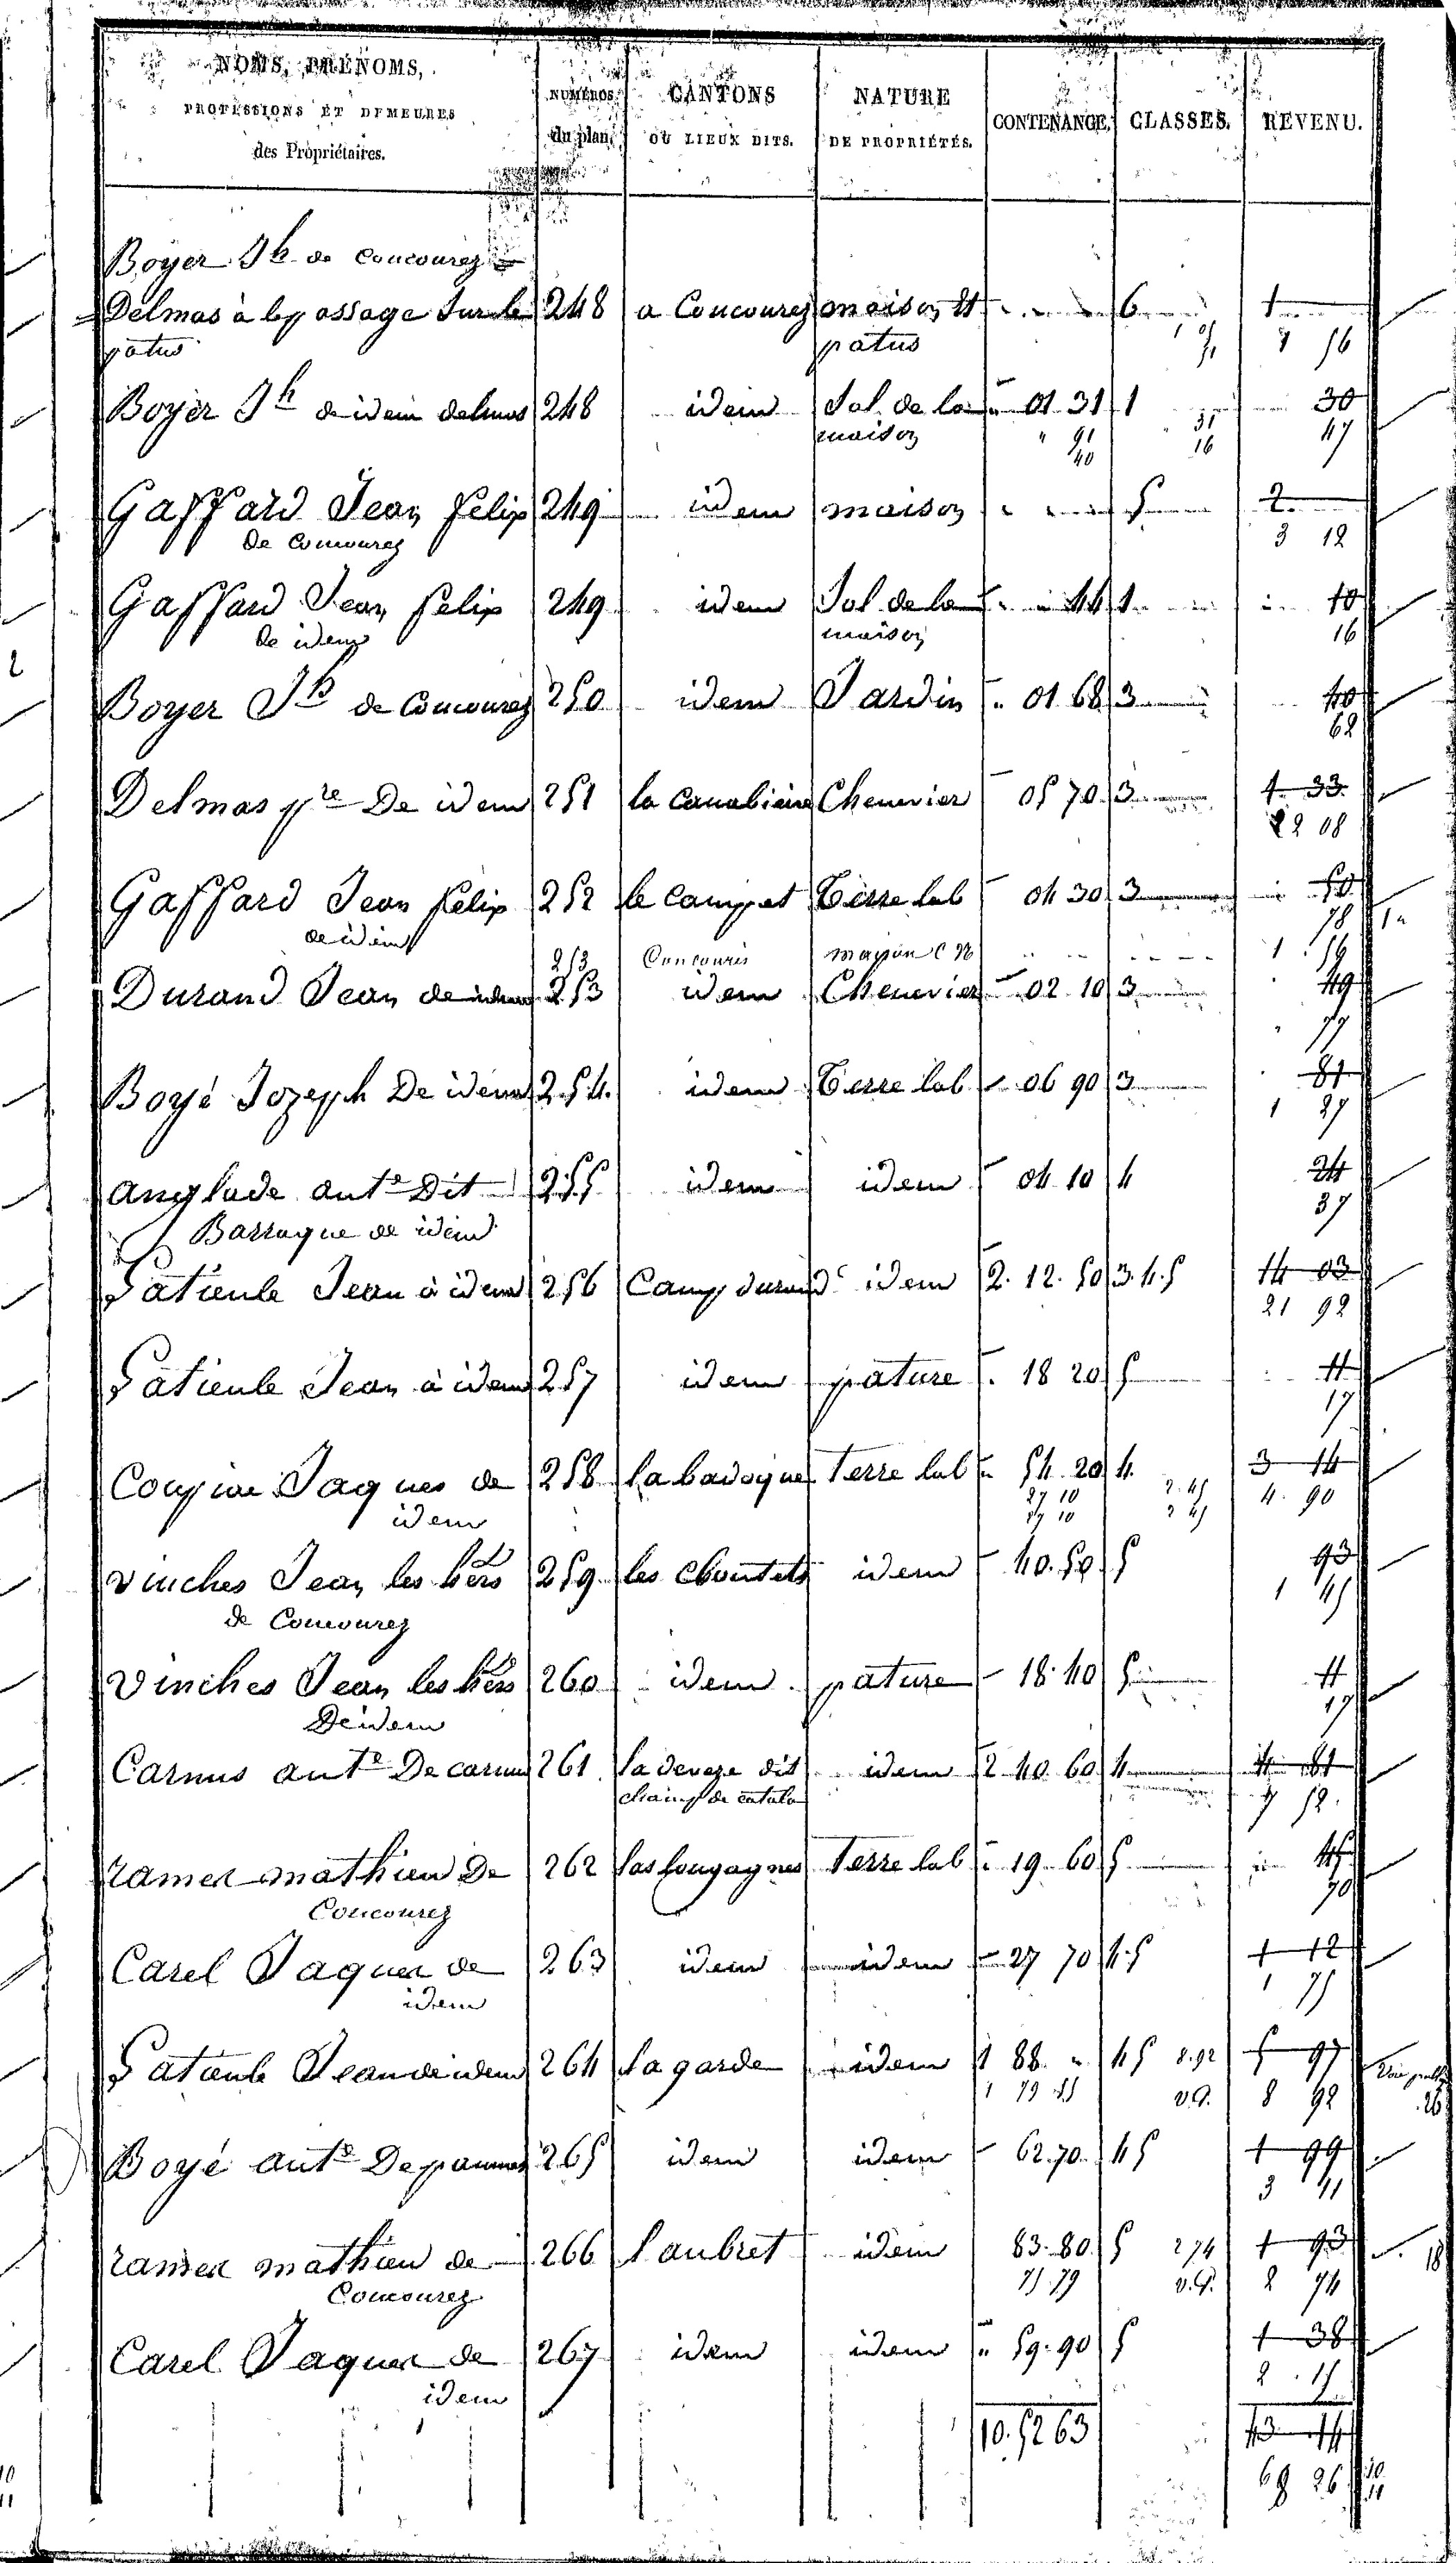 NOMS, PRÉNOMS, PROFESSIONS ET DEMEURES des Propriétaires. NUMÉROS du plan. CANTONS OU LIEUX DITS. NATURE DE PROPRIÉTÉS. CONTENANCE. CLASSES. REVENU.
Boyer Jh de Concourez
Delmas à le passage sur le 248 a Concourez maison et 6 1
patus patus 1 56
Boyer Jh de idem delmas 248 idem Sol de la 01 31 1 30
maison 91 31 47
40 16
Gaffard Jean felix 249 idem maison 5 2
de Concourez 3 12
Gaffard Jean felix 249 idem Sol de la 44 1 10
de idem maison 16
Boyer Jh de Concourez 250 idem Jardin 01 68 3 40
62
Delmas pre De idem 251 la canabiere Chenevier 05 70 3 1 33
2 08
Gaffard Jean felix 252 le campet Terre lab 04 30 3 50
de idem 78
253 Concouris maison 1 56
Durand Jean de idem 253 idem Chenevier 02 10 3 49
77
Boyé Jozeph De idem 254 idem Terre lab 06 90 3 81
1 27
Anglade ante Dit 255 idem idem 04 10 4 24
Barraque de idem 37
Patieule Jean à idem 256 Camp durand idem 2. 12. 50 3.4.5 14 03
21 92
Patieule Jean à idem 257 idem pature 18 20 5 11
17
Jaques de 258 la badoque Terre lab 54 20 4 3 14
idem 27 10 2.45 4. 90
27 10 2 45
vinches Jean les hers 259 les idem 40. 50 5 93
de Concourez 1 45
Vinches Jean les hers 260 idem pature 18. 40 5 11
De idem 17
Carnus ante De carnus 261 la deveze dit idem 2 40 60 4 4 81
champ de catala 7 52
ramer mathieu De 262 las fougagnes Terre lab 19 60 5 45
Concourez 70
Carel Jaques de 263 idem idem 27 70 4.5 1 12
idem 1 75
Patieule Jean de idem 264 la garde idem 1 88 4 5 8.92 5 97
1 79 v.P. 8 92
Boyé ante De 265 idem idem 62.70 4 5 1 99
3 11
ramer mathieu de 266 laubret idem 83.80 5 2 74 1 93
Concourez 75.79 v.P. 2 74
Carel Jaques de 267 idem idem 59.90 5 1 38
idem 2 15
10. 52 63 43 44
68 26